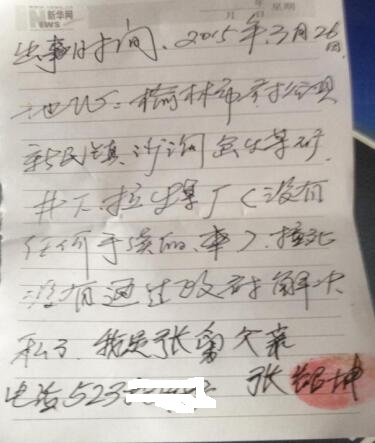 新华网
News
年 星期
月 日
出事时间、2015年3月26日
地址:榆林市府谷县
新民镇沙沟岔煤矿
井下拉煤厂(没有
任何手续的车)、撞死
没有通过政府解决
私了、我是张勇父亲
电话523 张绍坤